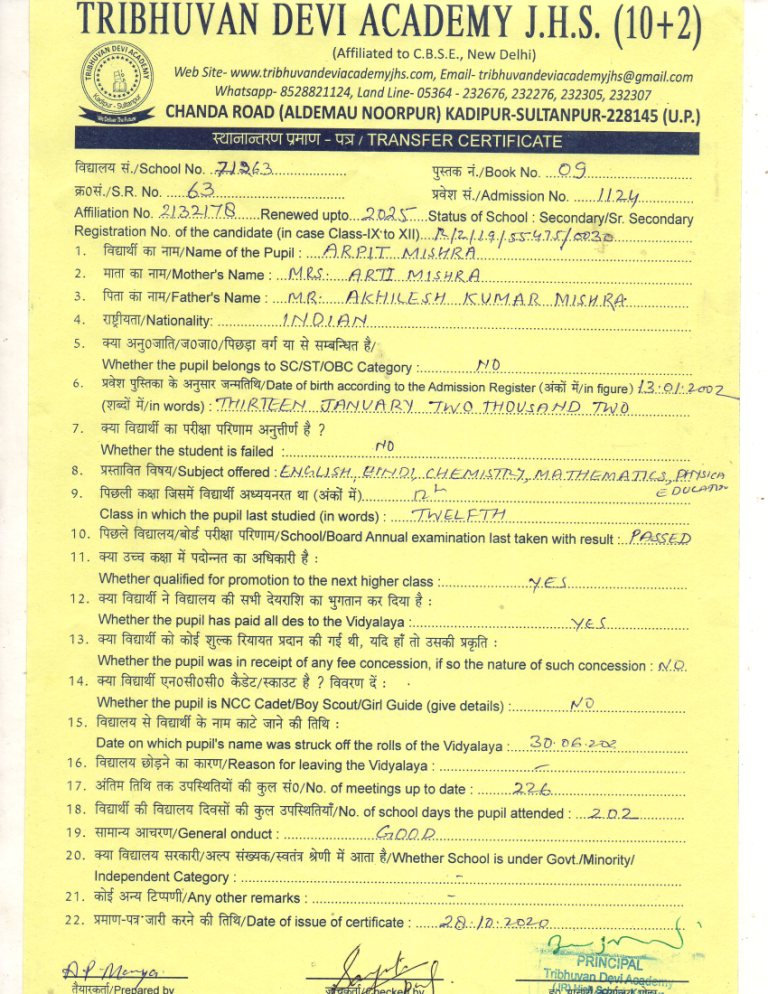 TRIBHUVAN DEVI ACADEMY J.H.S. (10+2)
(Affiliated to C.B.S.E., New Delhi)
Web Site- www.tribhuvandeviacademyjhs.com, Email- tribhuvandeviacademyjhs@gmail.com
Whatsapp- 8528821124, Land Line- 05364 - 232676, 232276, 232305, 232307
CHANDA ROAD (ALDEMAU NOORPUR) KADIPUR-SULTANPUR-228145 (U.P.)
TRIBHUVAN DEVI ACADEMY
Kadipur - Sultanpur
We Deliver The Future
स्थानान्तरण प्रमाण - पत्र / TRANSFER CERTIFICATE
विद्यालय सं./School No. 71263 पुस्तक नं./Book No. 09
क्र०सं./S.R. No. 63 प्रवेश सं./Admission No. 1124
Affiliation No. 2132178 Renewed upto 2025 Status of School : Secondary/Sr. Secondary
Registration No. of the candidate (in case Class-IX to XII) R/2/19/55475/0030
1. विद्यार्थी का नाम/Name of the Pupil : ARPIT MISHRA
2. माता का नाम/Mother's Name : MRS. ARTI MISHRA
3. पिता का नाम/Father's Name : MR. AKHILESH KUMAR MISHRA
4. राष्ट्रीयता/Nationality: INDIAN
5. क्या अनु०जाति/ज०जा०/पिछड़ा वर्ग या से सम्बन्धित है/
Whether the pupil belongs to SC/ST/OBC Category : NO
6. प्रवेश पुस्तिका के अनुसार जन्मतिथि/Date of birth according to the Admission Register (अंकों में/in figure) 13.01.2002
(शब्दों में/in words) : THIRTEEN JANUARY TWO THOUSAND TWO
7. क्या विद्यार्थी का परीक्षा परिणाम अनुत्तीर्ण है ?
Whether the student is failed : NO
8. प्रस्तावित विषय/Subject offered : ENGLISH, HINDI, CHEMISTRY, MATHEMATICS, PHYSICA
EDUCATION
9. पिछली कक्षा जिसमें विद्यार्थी अध्ययनरत था (अंकों में) 12th
Class in which the pupil last studied (in words) : TWELFTH
10. पिछले विद्यालय/बोर्ड परीक्षा परिणाम/School/Board Annual examination last taken with result : PASSED
11. क्या उच्च कक्षा में पदोन्नत का अधिकारी है :
Whether qualified for promotion to the next higher class : YES
12. क्या विद्यार्थी ने विद्यालय की सभी देयराशि का भुगतान कर दिया है :
Whether the pupil has paid all des to the Vidyalaya : YES
13. क्या विद्यार्थी को कोई शुल्क रियायत प्रदान की गई थी, यदि हाँ तो उसकी प्रकृति :
Whether the pupil was in receipt of any fee concession, if so the nature of such concession : NO
14. क्या विद्यार्थी एन०सी०सी० कैडेट/स्काउट है ? विवरण दें :
Whether the pupil is NCC Cadet/Boy Scout/Girl Guide (give details) : NO
15. विद्यालय से विद्यार्थी के नाम काटे जाने की तिथि :
Date on which pupil's name was struck off the rolls of the Vidyalaya : 30.06.202
16. विद्यालय छोड़ने का कारण/Reason for leaving the Vidyalaya : -
17. अंतिम तिथि तक उपस्थितियों की कुल सं०/No. of meetings up to date : 226
18. विद्यार्थी की विद्यालय दिवसों की कुल उपस्थितियाँ/No. of school days the pupil attended : 202
19. सामान्य आचरण/General onduct : GOOD
20. क्या विद्यालय सरकारी/अल्प संख्यक/स्वतंत्र श्रेणी में आता है/Whether School is under Govt./Minority/
Independent Category : -
21. कोई अन्य टिप्पणी/Any other remarks : -
22. प्रमाण-पत्र जारी करने की तिथि/Date of issue of certificate : 28.10.2020
PRINCIPAL
Tribhuvan Devi Academy
तैयारकर्ता/Prepared by